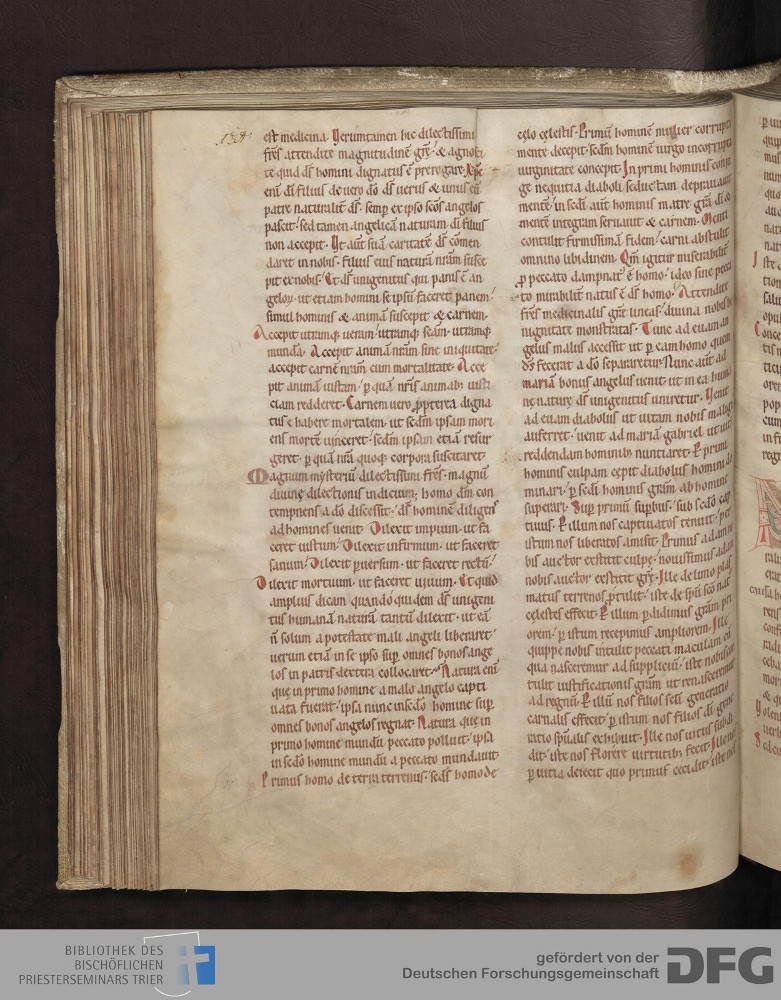 est medicina. Verumtamen hic dilectissimi
fr̄es attendite magnitudinē grę̄ & agnosci
te quid d̄s homini dignatus ē prerogare.
enī dī filius de uero dō d̄s uerus & unus cū
patre naturalit̄ d̄s. semp̄ ex ipso sc̄os angelos
pascit. sed tamen angelicā naturam dī filius
non accepit. Vt aut̄ suā caritatē d̄s cōmen
daret in nobis. filius eius naturā nr̄am susce
pit ex nobis. Et d̄s unigenitus qui panis ē an
geloꝝ. ut etiam homini se ipsū faceret panem.
simul hominis & animā suscepit & carnem.
Accepit utramq; ueram. utramq; sc̄am. utramq;
mundā. Accepit animā nr̄am sine iniquitate.
accepit carnē nr̄am cum mortalitate. Acce
pit animā iustam. p̄ quā nr̄is animab; iusti
ciam redderet. Carnem uero propterea digna
tus ē habere mortalem. ut sc̄dm ipsam mori
ens mortē uinceret. sc̄dm ipsam etiā resur
geret. p̄ quā nr̄a quoq; corpora suscitaret.
Magnum mysteriū dilectissimi fr̄es. magnū
diuinę dilectionis indicium; homo dm̄ con
tempnens a dō discessit. d̄s hominē diligens
ad homines uenit. Dilexit impium. ut fa
ceret iustum. Dilexit infirmum. ut faceret
sanum. Dilexit puersum. ut faceret rectū.
Dilexit mortuum. ut faceret uiuum. Et quid
amplius dicam quando quidem d̄s unigeni
tus humanā naturā tantū dilexit. ut eā
n̄ solum a potestate mali angeli liberaret.
uerum etiā in se ipso sup̄ omnes bonos ange
los in patris dextera collocaret. Natura enī
que in primo homine a malo angelo capti
uata fuerat. ipsa nunc in sc̄do homine sup̄
omnes bonos angelos regnat. Natura que in
primo homine mundū peccato polluit. ipsa
in sc̄do homine mundū a peccato mundauit.
Primus homo de terra terrenus. sc̄ds homo de
cęlo cęlestis. Primū hominē mulier corrupta
mente decepit. sc̄dm hominē uirgo incorrupta
uirginitate concepit. In primi hominis coniu
ge nequitia diaboli seductam deprauauit
mentē. in sc̄di aut̄ hominis matre gr̄a dī &
mentē integram seruauit & carnem. Menti
contulit firmissimā fidem. carni abstulit
omnino libidinem. Qm̄ igitur miserabilit̄
p̄ peccato dampnat̄ ē homo. ideo sine pecca
to mirabilit̄ natus ē d̄s homo. Attendite
fr̄es medicinalis gr̄e lineas. diuina nobis be
nignitate monstratas. Tunc ad euam an
gelus malus accessit ut p̄ eam homo quem
d̄s fecerat a dō separaretur. Nunc aut̄ ad
mariā bonus angelus uenit ut in ea huma
nę naturę d̄s unigenitus uniretur. Venit
ad euam diabolus ut uitam nobis
auferret. uenit ad mariā gabriel ut uitā
reddendam hominib; nuntiaret. P̄ primi
hominis culpam cepit diabolus homini do
minari. p̄ sc̄di hominis gr̄am ab homine
superari. Sup̄ primū supbus. sub sc̄do cap
tiuus. P̄ illum nos captiuatos tenuit. p̄
istum nos liberatos amisit. Primus adam no
bis auctor extitit culpę. nouissimus adam
nobis auctor exstitit grę̄. Ille de limo plas
matus terrenos p̄tulit. iste de sp̄u sc̄o nat̄
cęlestes effecit. P̄ illum pdidimus gr̄am pri
orem. p̄ istum recepimus ampliorem. Ille
quippe nobis intulit peccati maculam cū
qua nasceremur ad supplicium. iste nobis con
tulit iustificationis gr̄am ut renasceremur
ad regnū. P̄ illū nos filios seculi generatio
carnalis effecit. p̄ istum nos filios dī gene
ratio sp̄ualis exhibuit. Ille nos uitiis subdi
dit. iste nos florere uirtutib; fecit. Ille nos
p̄ uitia deiecit quo primus cecidit. iste nos
BIBLIOTHEK DES
BISCHÖFLICHEN
PRIESTERSEMINARS TRIER
gefördert von der
Deutschen Forschungsgemeinschaft
DFG